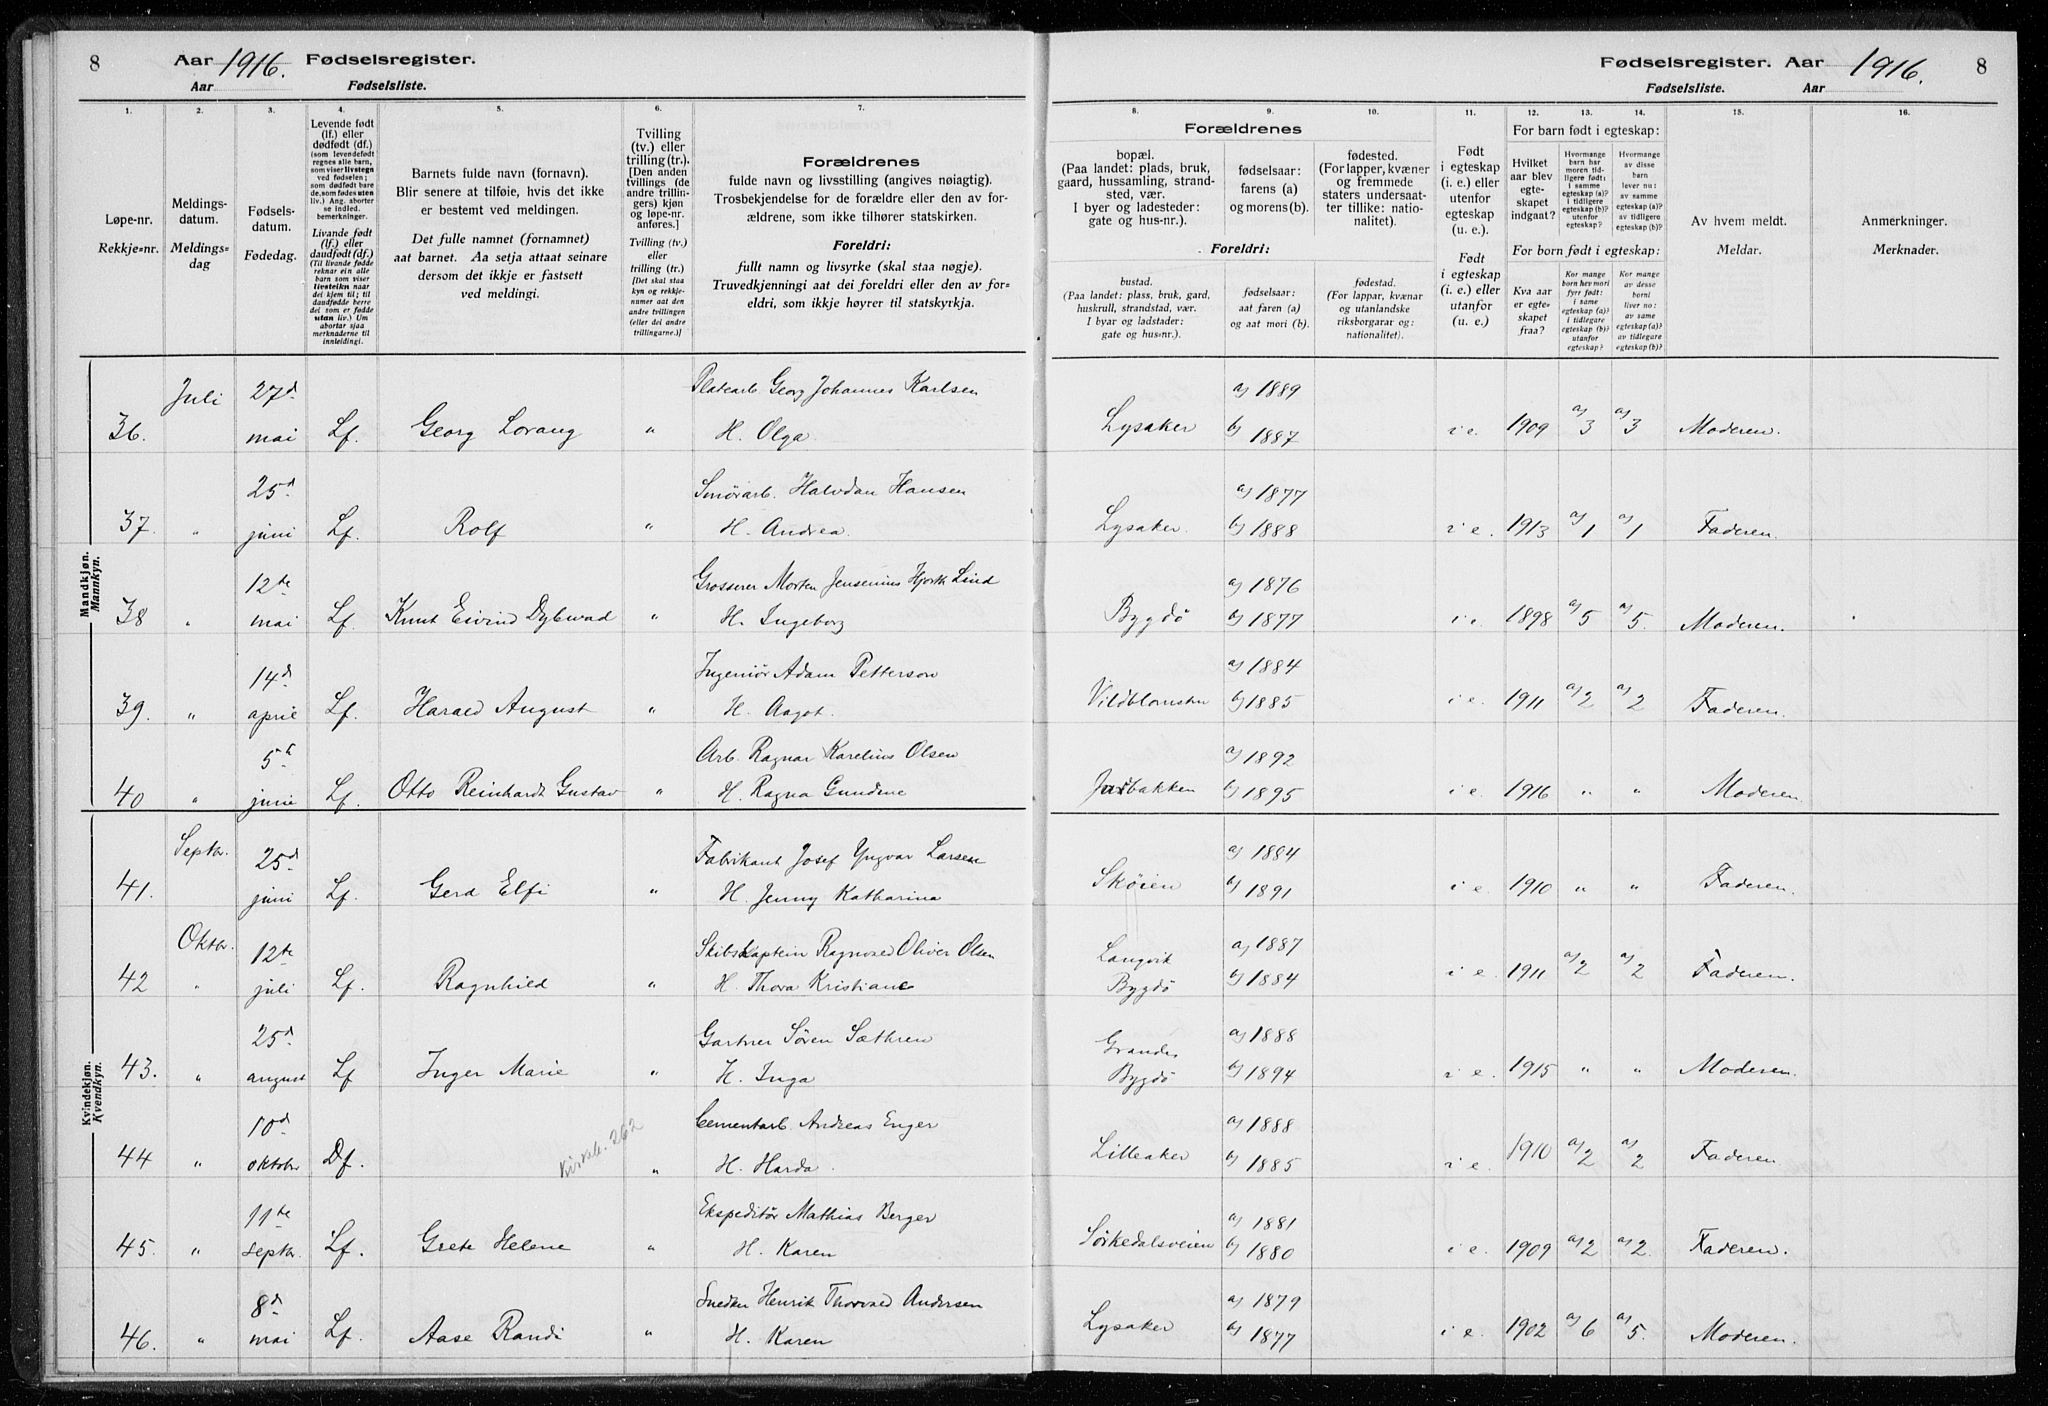 8
Aar 1916. Fødselsregister.
Aar Fødselsliste.
Fødselsregister. Aar 1916.
Fødselsliste. Aar
8
1. 2. 3. 4. 5. 6. 7. 8. 9. 10. 11. 12. 13. 14. 15. 16.
Løpe-nr.
Rekkje-nr.
Meldings-
datum.
Meldings-
dag
Fødsels-
datum.
Fødedag.
Levende født
(lf.) eller
dødfødt (df.)
(som levendefødt
regnes alle barn,
som viser livstegn
ved fødselen;
som dødfødt bare
de, som fødes uten
liv.) Ang. aborter
se indled.
bemerkninger.
Livande født
(lf.) eller
daudfødt (df.)
(Til livande fødde
reknar ein alle
barn som viser
livsteikn naar
dei kjem til; til
daudfødde berre
dei som er fødde
utan liv.) Um
abortar sjaa
merknaderne til
innleidingi.
Barnets fulde navn (fornavn).
Blir senere at tilføie, hvis det ikke
er bestemt ved meldingen.
Det fulle namnet (fornamnet)
aat barnet. Aa setja attaat seinare
dersom det ikkje er fastsett
ved meldingi.
Tvilling
(tv.) eller
trilling (tr.).
[Den anden
tvillings (de
andre trillin-
gers) kjøn
og løpe-nr.
anføres.]
Tvilling (tv.)
eller
trilling (tr.)
[Det skal staa
kyn og rekkje-
numer aat den
andre tvillingen
(eller dei andre
trillingarne.)]
Forældrenes
fulde navn og livsstilling (angives nøiagtig).
Trosbekjendelse for de forældre eller den av for-
ældrene, som ikke tilhører statskirken.
Foreldri:
fullt namn og livsyrke (skal staa nøgje).
Truvedkjenningi aat dei foreldri eller den av for-
eldri, som ikkje høyrer til statskyrkja.
Forældrenes
bopæl.
(Paa landet: plads, bruk,
gaard, hussamling, strand-
sted, vær.
I byer og ladesteder:
gate og hus-nr.).
fødselsaar:
farens (a)
og morens (b).
fødested.
(For lapper, kvæner
og fremmede
staters undersaat-
ter tillike: natio-
nalitet).
Foreldri:
bustad.
(Paa landet: plass, bruk, gard,
huskrull, strandstad, vær.
I byar og ladstader:
gate og hus-nr.).
fødselsaar:
aat faren (a)
og aat mori (b).
fødestad.
(For lappar, kvænar
og utanlandske
riksborgarar og:
nationalitet).
Født
i egteskap
(i. e.) eller
utenfor
egteskap
(u. e.).
Født
i egteskap
(i. e.) eller
utanfor
(u. e.).
For barn født i egteskap:
Hvilket
aar blev
egte-
skapet
indgaat?
Hvormange
barn har
moren tid-
ligere født:
i samme
egteskap (a)?
i tidligere
egteskap (b)?
utenfor
egteskap?
Hvormange
av disse
barn
lever nu:
av samme
egteskap (a)?
av tidligere
egteskap (b)?
For born født i egteskap:
Kva aar
er egte-
skapet
fraa?
Kor mange
born hev mori
fyrr født:
i same
egteskap (a)?
i tidlegare
egteskap (b)?
utanfor
egteskap?
Kor mange
av desse
borni
liver no:
av same
egteskap (a)?
av tidlegare
egteskap (b)?
Av hvem meldt.
Meldar.
Anmerkninger.
Merknader.
Mandkjøn.
Mannkyn.
Juli 27d Platearb. Georg Johannes Karlsen a) 1889
36. mai Lf. Georg Lorang " H. Olga Lysaker b) 1887 i e. 1909 a) 3 a) 3 Moderen.
25d Smørarb. Halvdan Hansen a) 1877
37. " juni Lf. Rolf " H. Andrea. Lysaker. b) 1888 i e. 1913 a) 1 a) 1 Faderen.
12te Grosserer Morten Jensenius Hjorth Lind a) 1876
38 " mai Lf. Knut Eivind Dybwad " H. Ingeborg Bygdö b) 1877 i e. 1898 a) 5 a) 5. Moderen.
14d Ingeniör Adam Petterson a) 1884
39. " april Lf. Harald August " H. Aagot. Vildblomsten b) 1885 i e. 1911 a) 2 a) 2 Faderen.
5t Arb. Ragnar Karelius Olsen a) 1892
40 " juni Lf. Otto Reinhardt Gustav " H. Ragna Gundine b) 1895 i e. 1916 " " Moderen.
Kvindekjøn.
Kvendkyn.
Septbr. 25d Fabrikant Josef Yngvar Larsen a) 1884
41. juni Lf. Gerd Elfi " H. Jenny Katharina Skøien b) 1891 i e. 1910 " " Faderen.
Oktbr. 12te Skibskaptein Ragnvald Oliver Olsen Langvik a) 1887
42 " juli Lf. Ragnhild " H. Thora Kristiane Bygdö b) 1884 i e. 1911 a) 2 a) 2 Faderen.
25d Gartner Søren Sæthren Grandes a) 1888
43. " august Lf Inger Marie " H. Inga Bygdö b) 1894 i e. 1915 " " Moderen.
10d Cementarb. Andreas Enger a) 1888
44 " oktober Df. 262 " H. Harda. Lilleaker b) 1885 i e. 1910 a) 2 a) 2 Faderen.
11te Ekspeditør Mathias Berger a) 1881
45. " septbr. Lf. Grete Helene " H. Karen Sørkedalsveien b) 1880 i e. 1909 a) 2 a) 2. Faderen.
8d Snedker Henrik Thorvald Andersen a) 1879
46. " mai Lf. Aase Randi " H. Karen Lysaker b) 1877 i e. 1902 a) 6 a) 5. Moderen.